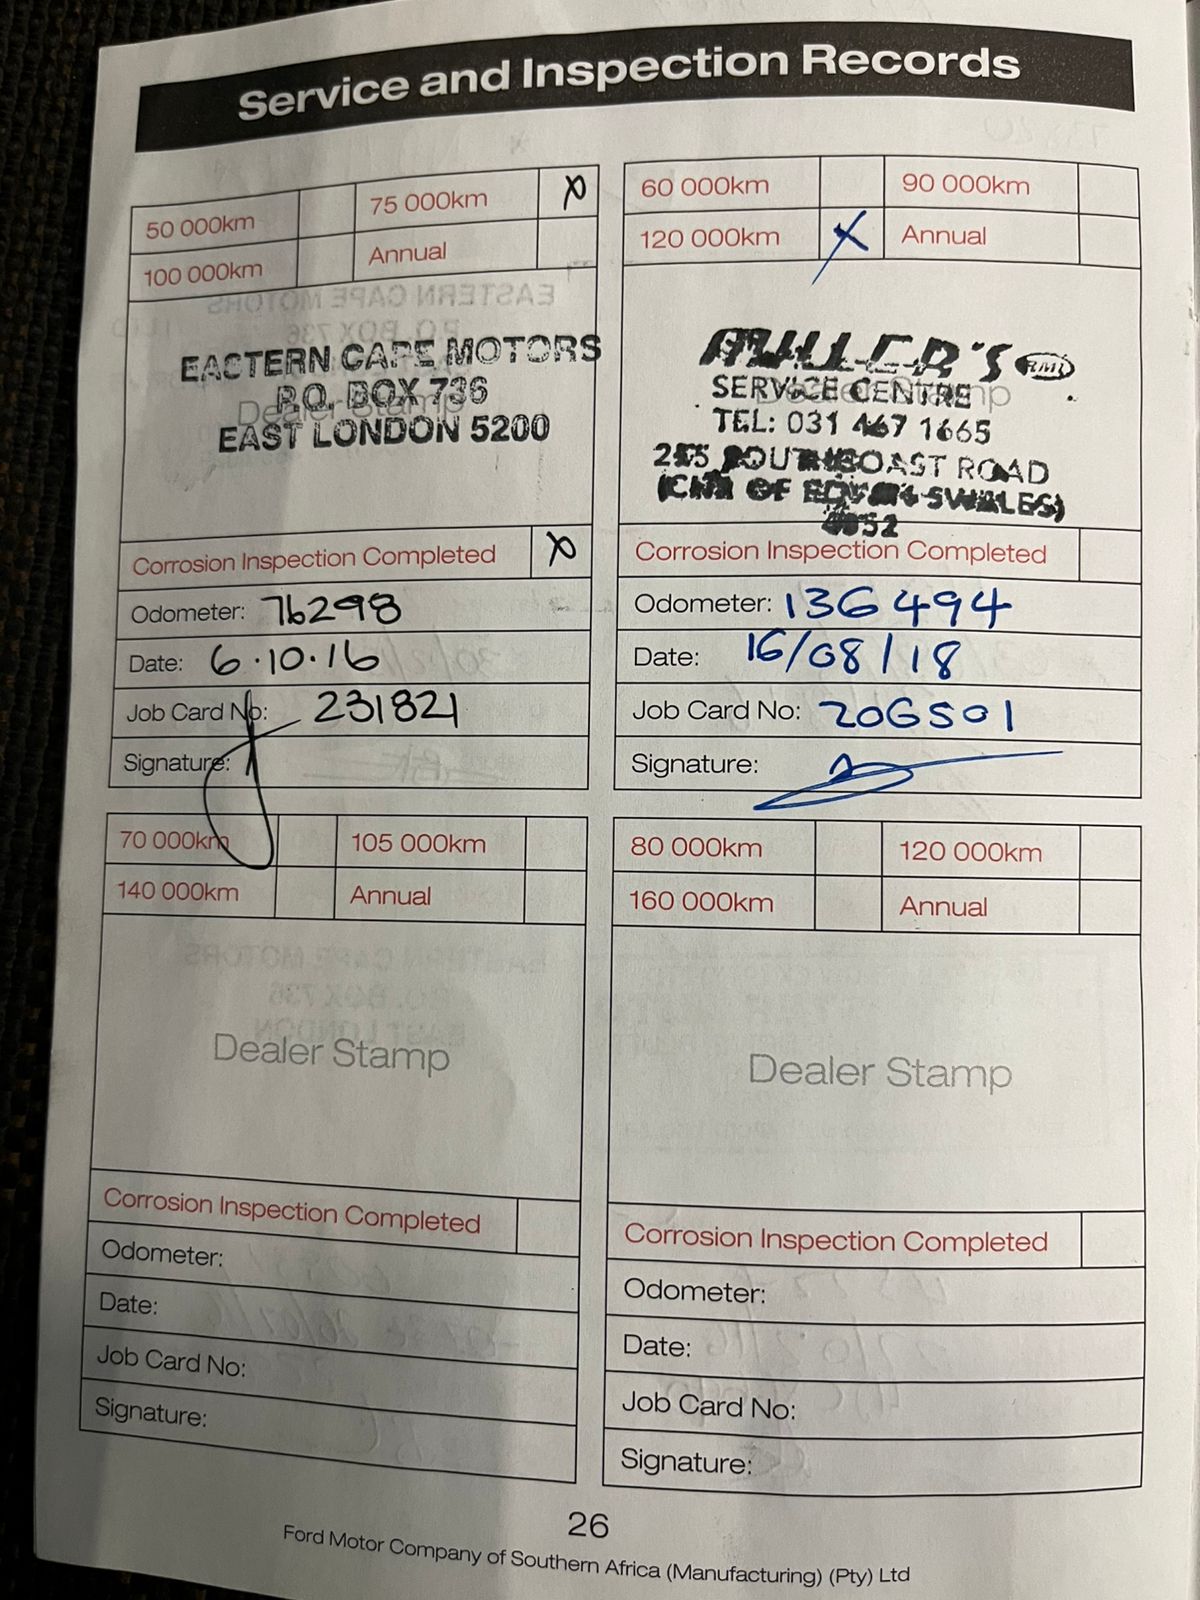 Service and Inspection Records
50 000km 75 000km X
100 000km Annual
EASTERN CAPE MOTORS
P.O. BOX 736
EAST LONDON 5200
Dealer Stamp
Corrosion Inspection Completed X
Odometer: 76298
Date: 6.10.16
Job Card No: 231821
Signature:
60 000km 90 000km
120 000km X Annual
MULLER'S RMI
SERVICE CENTRE
Dealer Stamp
TEL: 031 467 1665
SOUTH COAST ROAD
OF SWALES)
4052
Corrosion Inspection Completed
Odometer: 136494
Date: 16/08/18
Job Card No: 206501
Signature:
70 000km 105 000km
140 000km Annual
Dealer Stamp
Corrosion Inspection Completed
Odometer:
Date:
Job Card No:
Signature:
80 000km 120 000km
160 000km Annual
Dealer Stamp
Corrosion Inspection Completed
Odometer:
Date:
Job Card No:
Signature:
26
Ford Motor Company of Southern Africa (Manufacturing) (Pty) Ltd